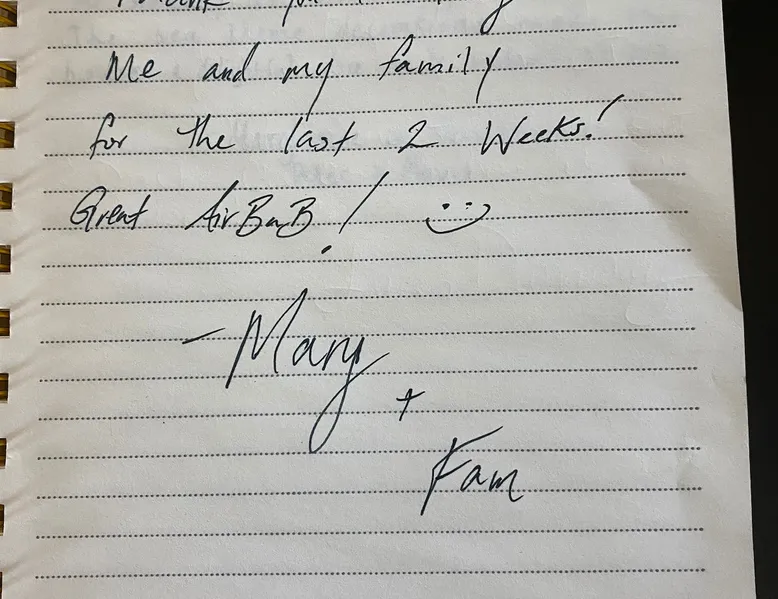 Thank you
Me and my family
for the last 2 Weeks!
Great AirBnB! :)
- Mary
+
Fam